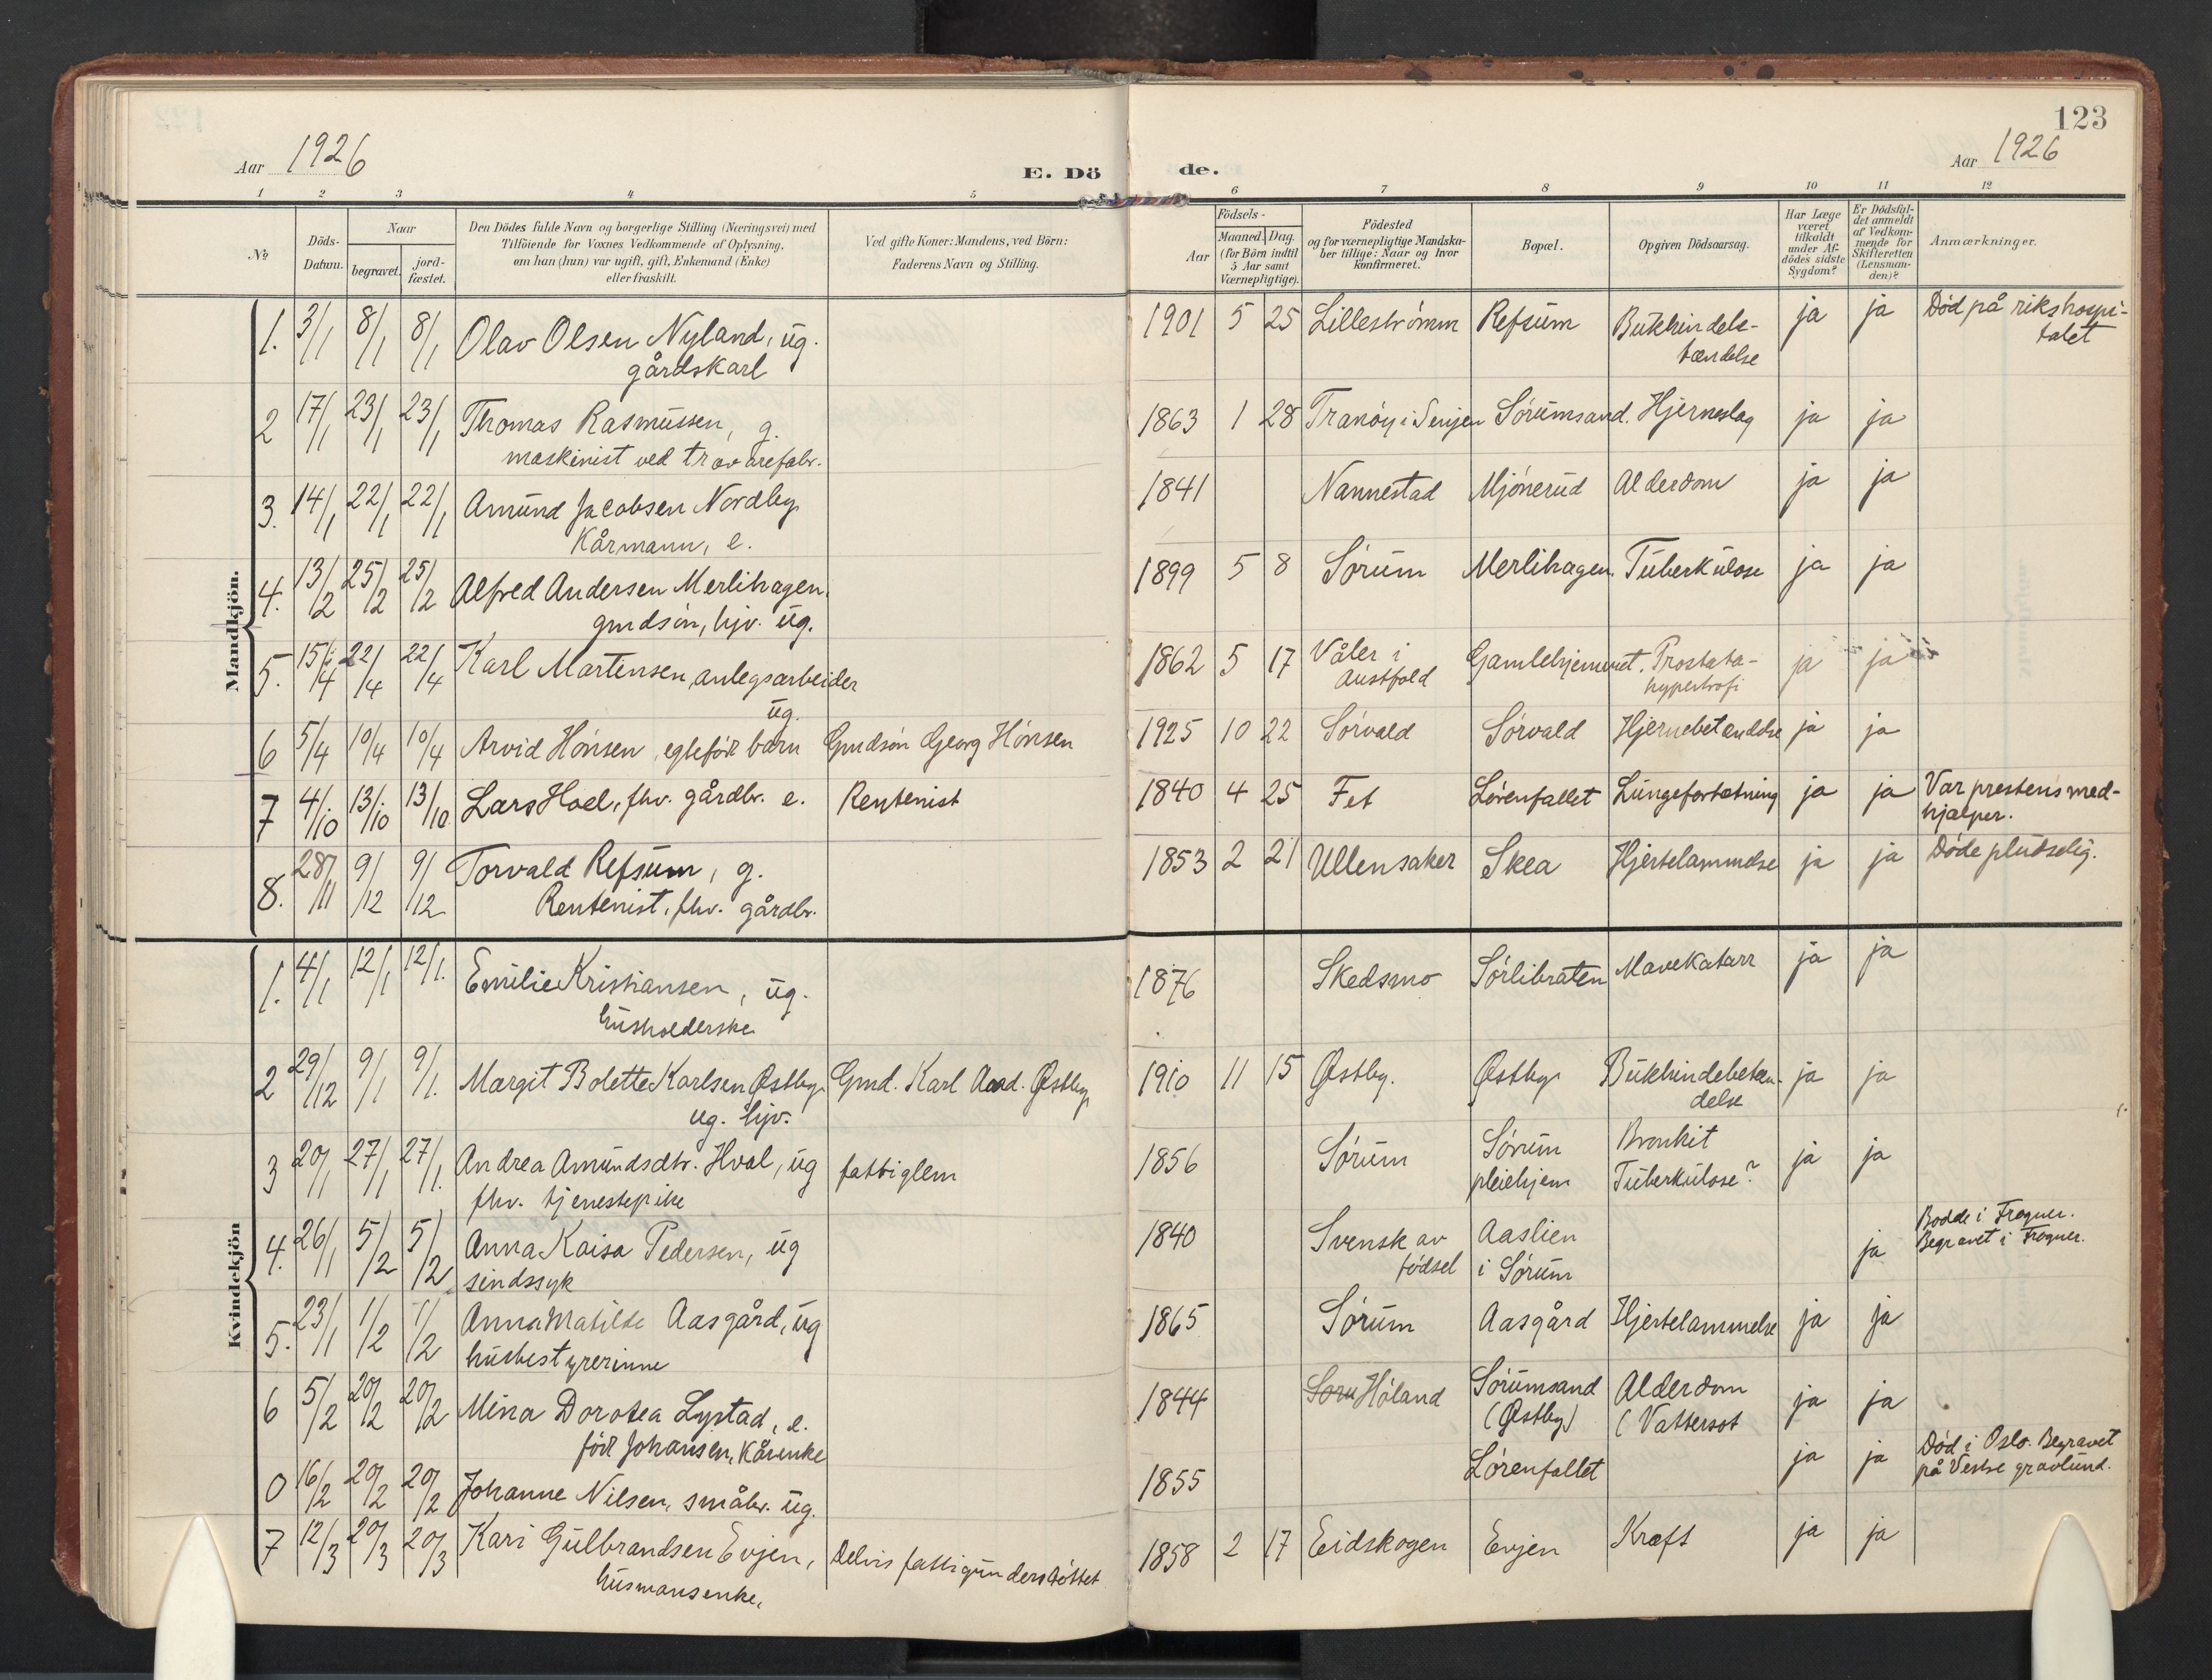 123
Aar 1926
E. Dö
de.
Aar 1926
1 2 3 4 5 6 7 8 9 10 11 12
No
Döds-Datum.
Naar
begravet.
jord-fæstet.
Den Dödes fulde Navn og borgerlige Stilling (Næringsvei) med
Tilföiende for Voxnes Vedkommende af Oplysning.
om han (hun) var ugift, gift, Enkemand (Enke)
eller fraskilt.
Ved gifte Koner: Mandens, ved Börn:
Faderens Navn og Stilling.
Födsels-
Aar
Maaned. Dag.
(for Börn indtil
5 Aar samt
Værnepligtige).
Födested
og for værnepligtige Mandska-
ber tillige: Naar og hvor
konfirmeret.
Bopæl.
Opgiven Dödsaarsag.
Har Læge
været
tilkaldt
under Af-
dödes sidste
Sygdom?
Er Dödsfal-
det anmeldt
af Vedkom-
mende for
Skifteretten
(Lensman-
den)?
Anmærkninger.
Mandkjön.
1. 3/1 8/1 8/1 Olav Olsen Nyland, ug. 1901 5 25 Lillestrømm Refsum Bukhindebe- ja ja Død på rikshospi-
gårdskarl tændelse talet
2 17/1 23/1 23/1 Thomas Rasmussen, g. 1863 1 28 Tranøy i Senjen Sørumsand. Hjerneslag ja ja
maskinist ved trævarefabr.
3. 14/1 22/1 22/1 Amund Jacobsen Nordby 1841 Nannestad Mjønerud Alderdom ja ja
Kårmann, e.
4. 13/2 25/2 25/2 Alfred Andersen Merlihagen, 1899 5 8 Sørum Merlihagen. Tuberkulose ja ja
gmdsøn, hjv. ug.
5. 15/4 22/4 22/4 Karl Martinsen, anlegsarbeider 1862 5 17 Våler i Gamlehjemmet. Prostata- ja ja
ug. Austfold hypertrofi
6 5/4 10/4 10/4 Arvid Hønsen, egtefødt barn Gmdsøn Georg Hønsen 1925 10 22 Sørvald Sørvald Hjernebetændelse ja ja
7 4/10 13/10 13/10 Lars Hoel, fhv. gårdbr. e. Rentenist 1840 4 25 Fet Lørenfallet Lungefortætning ja ja Var prestens med-
hjælper.
8. 28/11 9/12 9/12 Torvald Refsum, g. 1853 2 21 Ullensaker Skea Hjertelammelse ja ja Døde pludselig.
Rentenist, fhv. gårdbr.
Kvindekjön
1. 4/1 12/1 12/1. Emilie Kristiansen, ug. 1876 Skedsmo Sørlibråten Mavekatarr ja ja
husholderske
2 29/12 9/1 9/1. Margit Bolette Karlsen Østby Gmd. Karl And. Østby 1910 11 15 Østby. Østby Bukhindebetæn- ja ja
ug. hjv. delse
3 20/1 27/1 27/1. Andrea Amundsdtr. Hval, ug fattiglem 1856 Sørum Sørum Bronkit ja ja
fhv. tjenestepike pleiehjem Tuberkulose?
4. 26/1 5/2 5/2 Anna Kaisa Pedersen, ug 1840 Svensk av Aaslien ja Bodde i Frogner.
sindssyk fødsel i Sørum Begravet i Frogner.
5. 23/1 1/2 1/2 Anna Matilde Aasgård, ug 1865 Sørum Aasgård Hjertelammelse ja ja
husbestyrerinne
6 5/2 20/2 20/2 Mina Dorotea Lystad, e. 1844 Søru Høland Sørumsand Alderdom ja ja
født Johansen, Kårenke (Østby) (Vattersot
0 16/2 20/2 20/2 Johanne Nilsen, småbr. ug. 1855 Lørenfallet ja ja Død i Oslo. Begravet
på Vestre gravlund.
7 12/3 20/3 20/3 Kari Gulbrandsen Evjen, Delvis fattigunderstøttet 1858 2 17 Eidskogen Evjen Kræft ja ja
husmansenke.